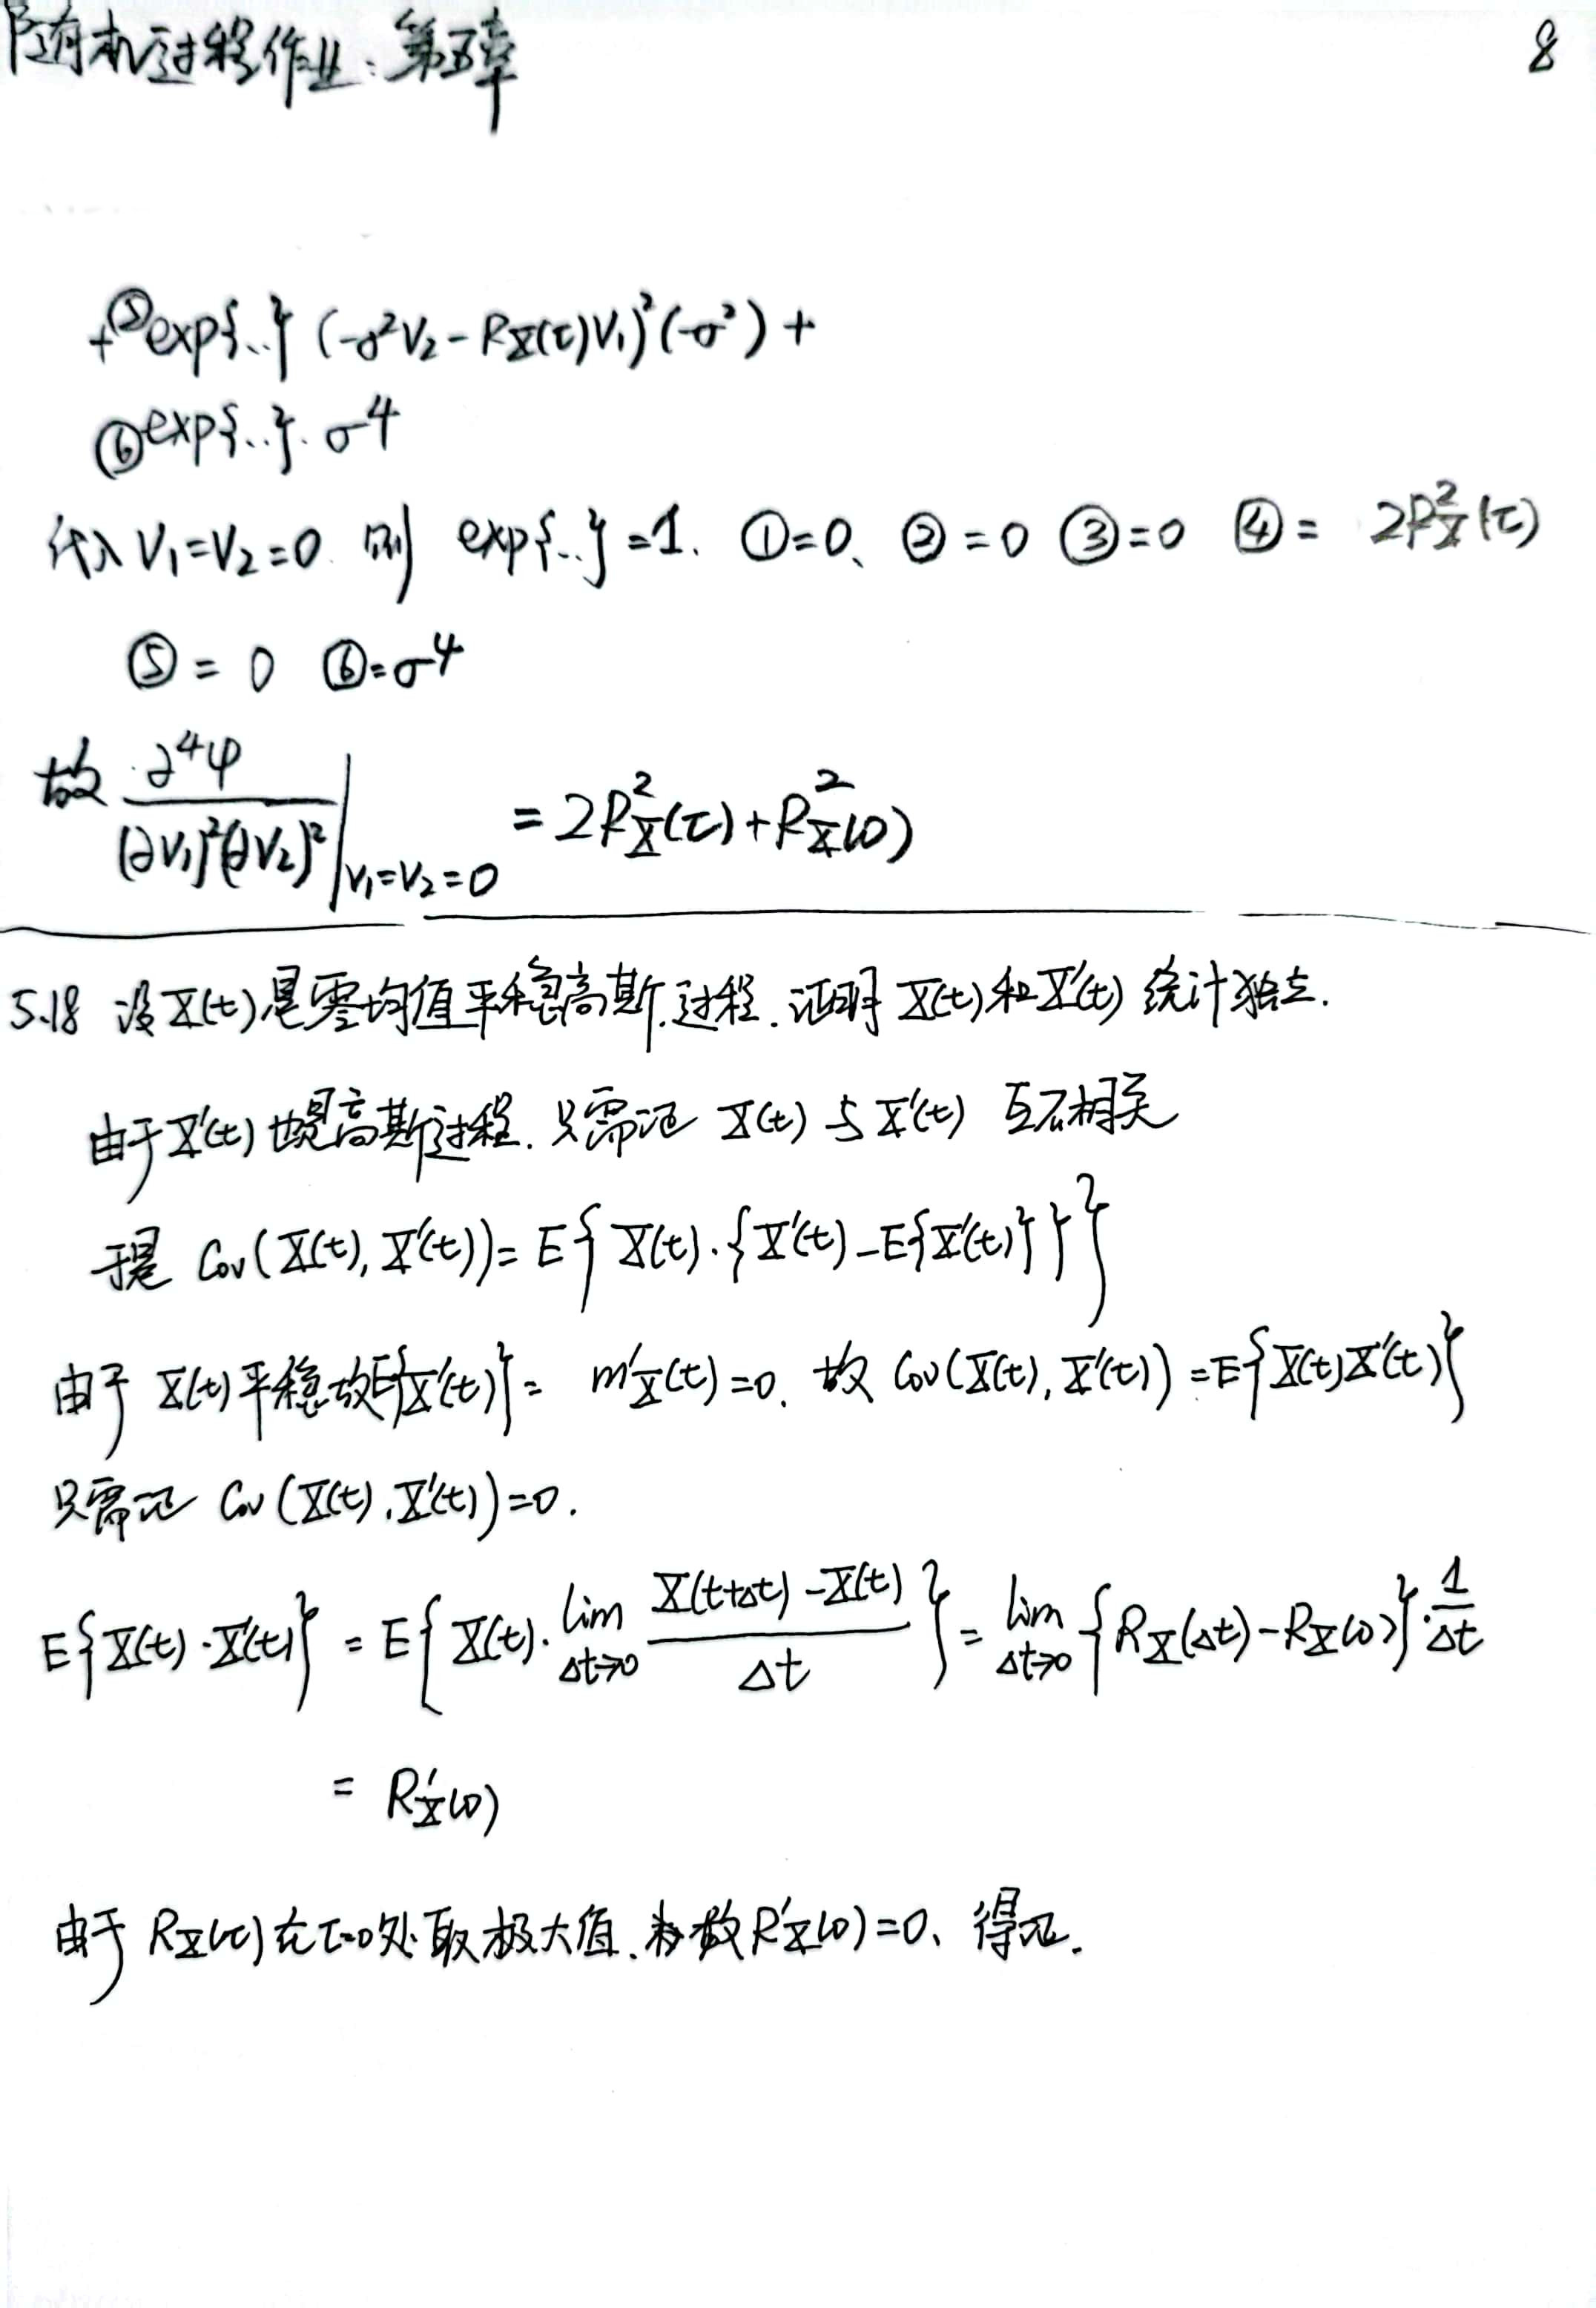 随机过程作业:第五章
8
+⑤exp{..} (-σ²V₂-R_X(τ)V₁)²(-σ²) +
⑥exp{..}. σ⁴
代入 V₁=V₂=0. 则 exp{..}=1. ①=0、②=0 ③=0 ④= 2R_X²(τ)
⑤=0 ⑥=σ⁴
故 ∂⁴φ/(∂V₁)²(∂V₂)² |V₁=V₂=0 = 2R_X²(τ)+R_X²(0)
5.18 设X(t)是零均值平稳高斯过程. 证明 X(t)和X'(t) 统计独立.
由于X'(t)也是高斯过程. 只需证 X(t) 与 X'(t) 互不相关
于是 Cov(X(t), X'(t))= E{ X(t)·{X'(t)-E{X'(t)}} }
由于 X(t)平稳故E{X'(t)}= m'_X(t)=0. 故 Cov(X(t), X'(t)) =E{X(t)X'(t)}
只需证 Cov(X(t), X'(t))=0.
E{X(t)·X'(t)} = E{ X(t)· lim Δt→0 (X(t+Δt)-X(t))/Δt } = lim Δt→0 {R_X(Δt)-R_X(0)}·1/Δt
= R'_X(0)
由于 R_X(τ)在τ=0处取极大值. 故R'_X(0)=0、得证.